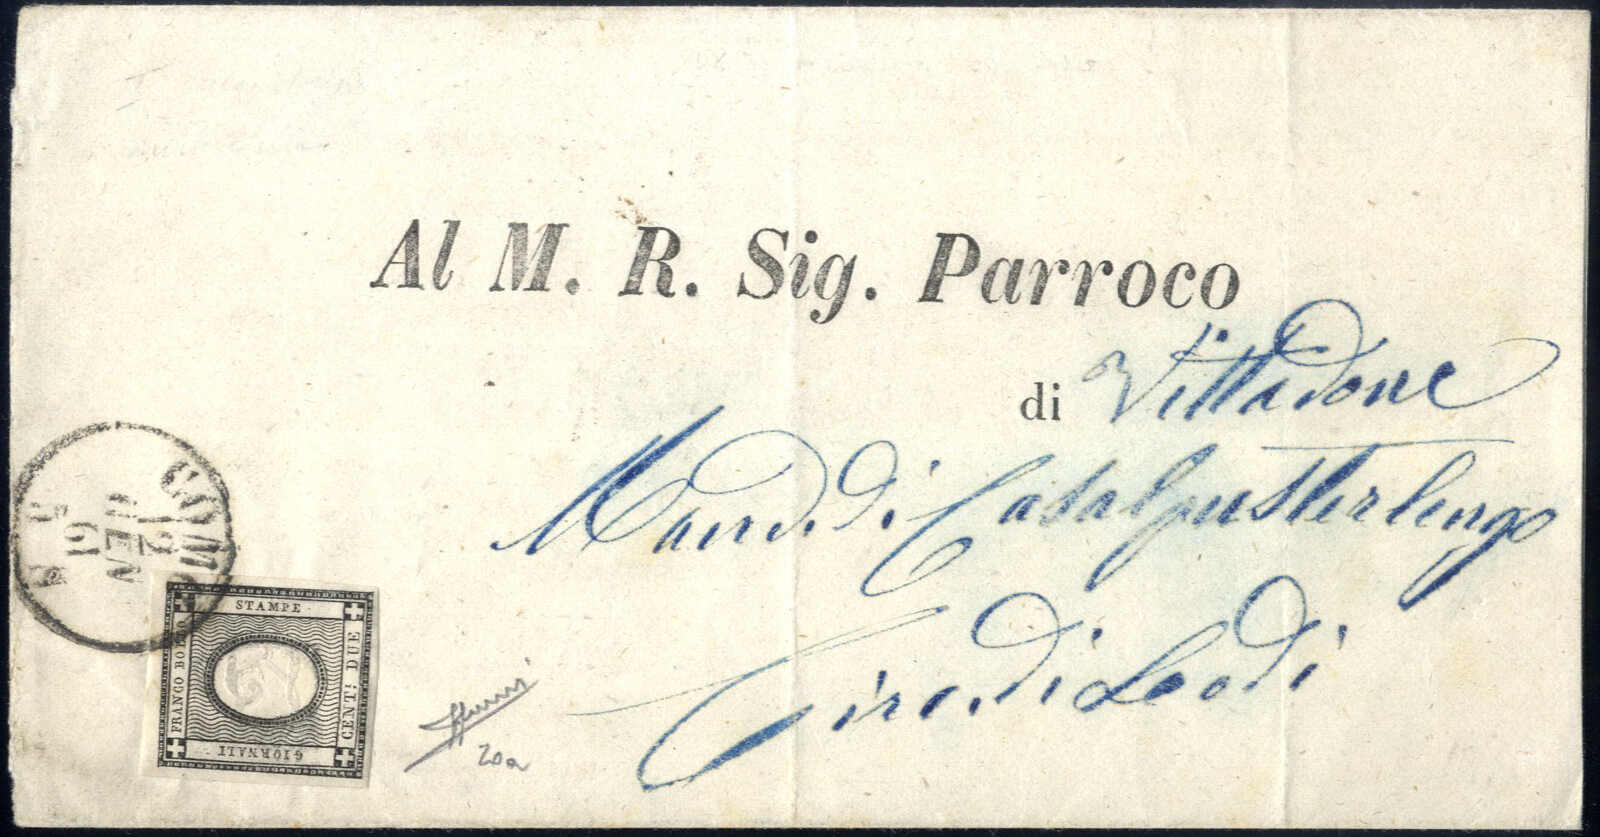 Al M. R. Sig. Parroco
di Vittadone
Mand. di Casalpusterlengo
Circ. di Lodi
COMO
12
GEN
61
STAMPE
FRANCO BOLLO
CENT! DUE
GIORNALI
20a